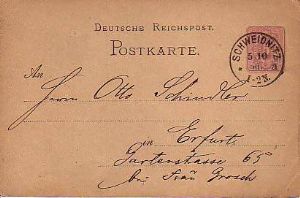 DEUTSCHE REICHSPOST.
POSTKARTE.
SCHWEIDNITZ
5 10
1-2N.
An
Herrn Otto Schindler
in Erfurt
Gartenstrasse 65
bei Frau Grosch